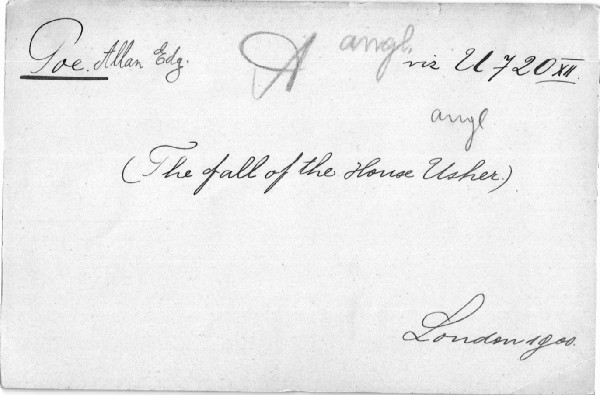 Poe. Allan Edg. A angl. viz U 720 XII.
angl
(The fall of the House Usher.)
London 1900.